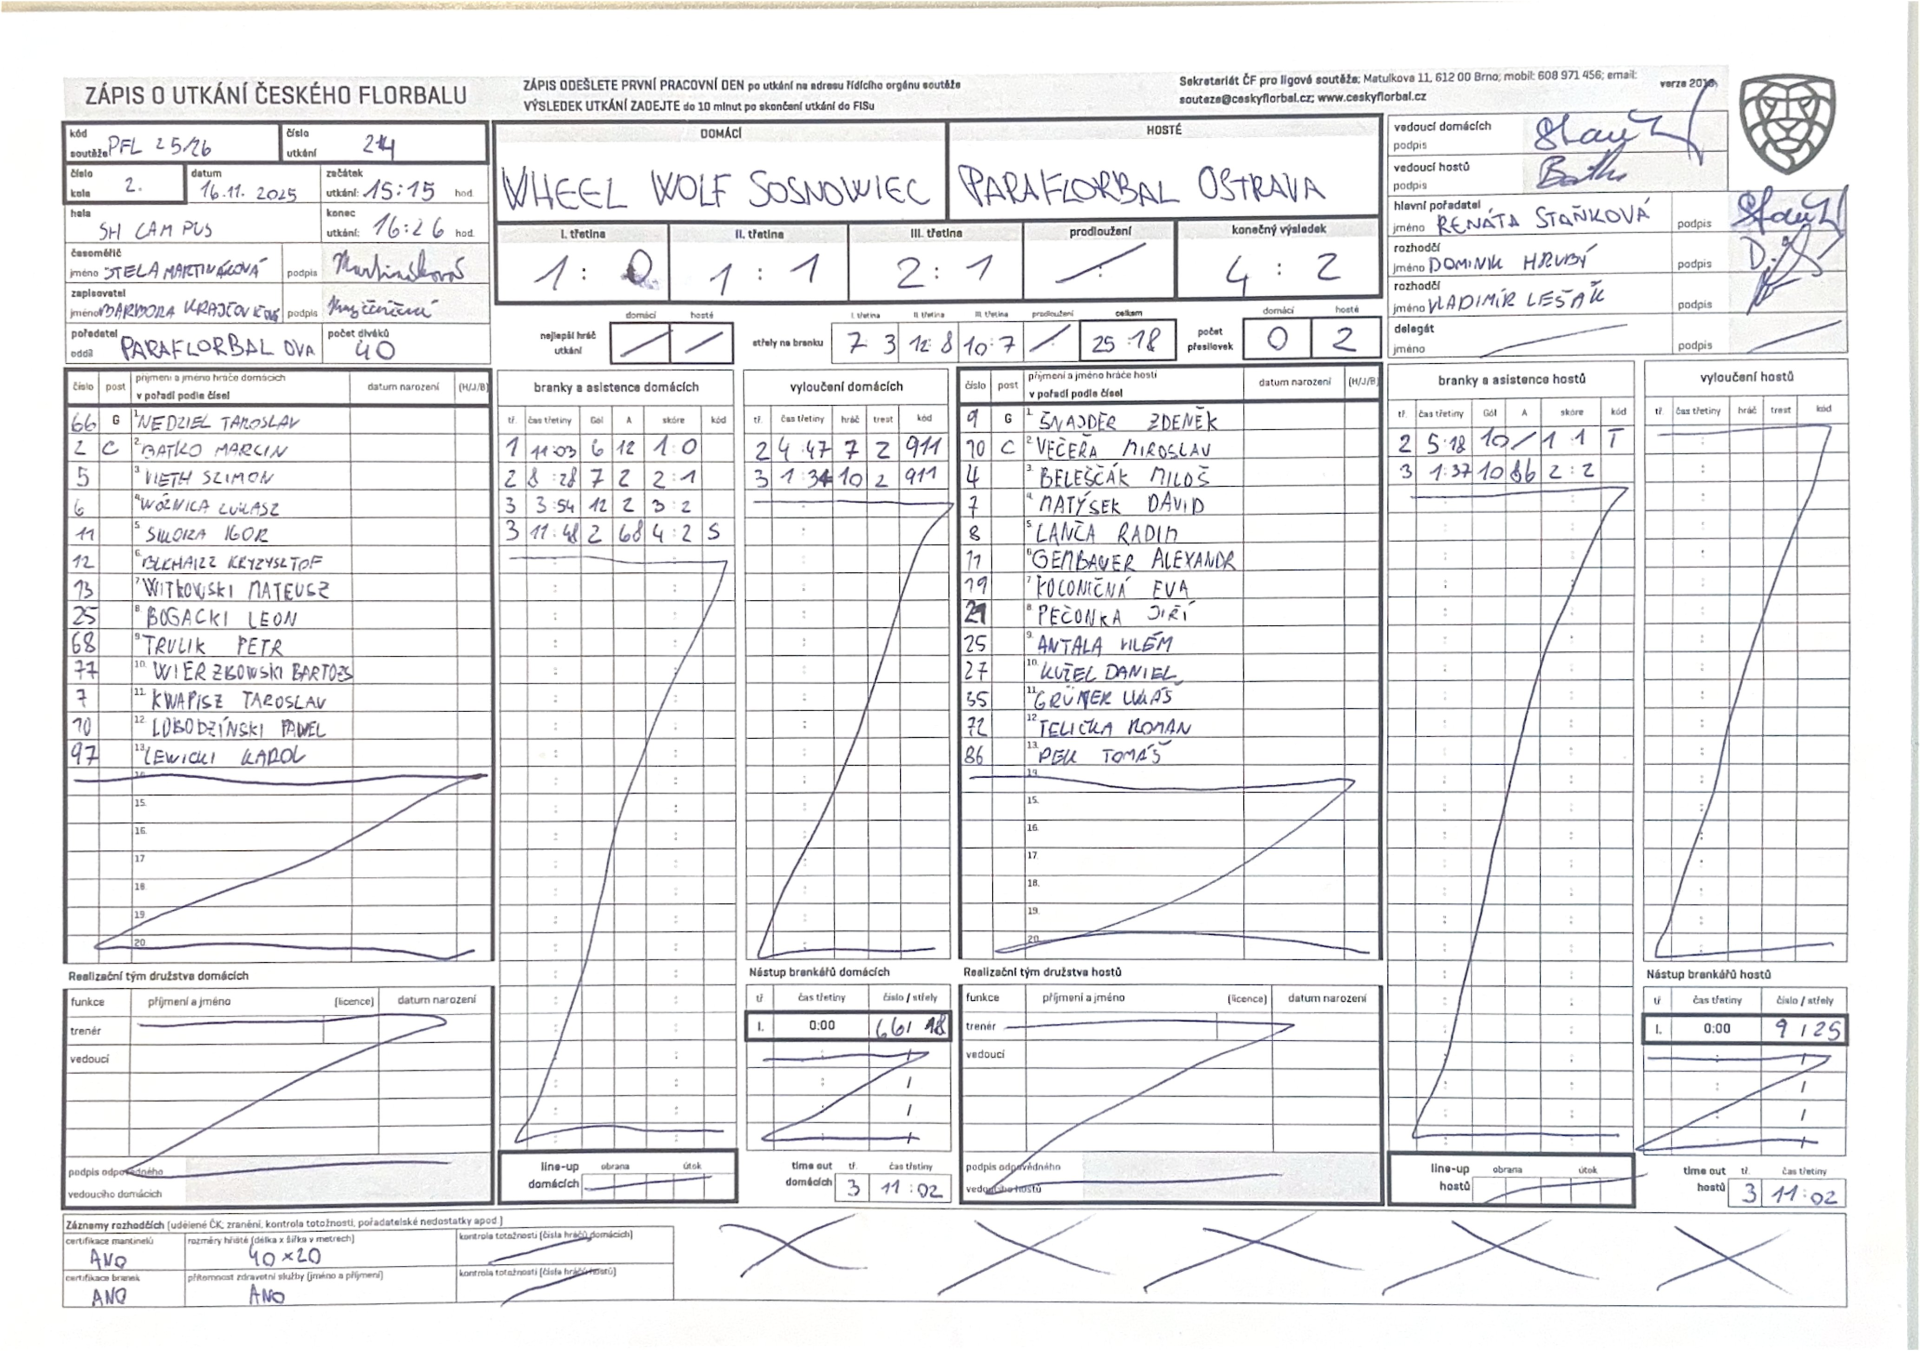 ZÁPIS O UTKÁNÍ ČESKÉHO FLORBALU
ZÁPIS ODEŠLETE PRVNÍ PRACOVNÍ DEN po utkání na adresu řídícího orgánu soutěže
VÝSLEDEK UTKÁNÍ ZADEJTE do 10 minut po skončení utkání do FISu
Sekretariát ČF pro ligové soutěže; Matulkova 11, 612 00 Brno; mobil: 608 971 456; email:
souteze@ceskyflorbal.cz; www.ceskyflorbal.cz
kód soutěže PFL 25/26
číslo utkání
číslo kola 2.
datum 16.11. 2025
začátek utkání: 15:15 hod.
hala SH CAMPUS
konec utkání: 16:26 hod.
časoměřič
jméno STELA MARTINÁKOVÁ podpis
zapisovatel
jméno BARBORA podpis
pořadatel oddíl PARAFLORBAL OVA
počet diváků 40
DOMÁCÍ
WHEEL WOLF SOSNOWIEC
HOSTÉ
PARAFLORBAL OSTRAVA
I. třetina II. třetina III. třetina prodloužení konečný výsledek
1 : 0 1 : 1 2 : 1 4 : 2
nejlepší hráč utkání domácí hosté
střely na branku I. třetina II. třetina III. třetina prodloužení celkem
7 3 12 : 8 10 : 7 25 : 18
počet přesilovek domácí hosté
0 2
vedoucí domácích
podpis
vedoucí hostů
podpis
hlavní pořadatel
jméno RENÁTA STAŇKOVÁ podpis
rozhodčí
jméno DOMINIK HRUBÝ podpis
rozhodčí
jméno VLADIMÍR LEŠÁK podpis
delegát
jméno podpis
číslo post příjmení a jméno hráče domácích v pořadí podle čísel datum narození (H/J/B)
66 G 1. NEDZIEL TAROSLAV
2 C 2. BATKO MARCIN
5 3. VIETH SZIMON
6 4. WOŹNICA LUKASZ
11 5. SIKORA IGOR
12 6. KRYZYSZTOF
13 7. WITKOWSKI MATEUSZ
25 8. BOGACKI LEON
68 9. TRULIK PETR
77 10. WIERZBOWSKI BARTOSZ
7 11. KWAPISZ TAROSLAV
10 12. LOBODZIŃSKI PAWEL
97 13. LEWICKI KAROL
15.
16.
17
18.
19
20.
branky a asistence domácích
tř. čas třetiny Gól A skóre kód
1 11:03 6 12 1:0
2 8:28 7 2 2:1
3 3:54 12 2 3:2
3 11:48 2 68 4:2 S
vyloučení domácích
tř. čas třetiny hráč trest kód
2 4:47 7 2 911
3 1:34 10 2 911
číslo post příjmení a jméno hráče hostí v pořadí podle čísel datum narození (H/J/B)
9 G 1. ŠNAJDER ZDENĚK
10 C 2. VEČEŘA MIROSLAV
4 3. BELEŠČÁK MILOŠ
7 4. MATÝSEK DAVID
8 5. LANČA RADIM
11 6. GEMBAUER ALEXANDR
19 7. KOLONIČNÁ EVA
21 8. PEČONKA JIŘÍ
25 9. ANTALA VILÉM
27 10. KUŽEL DANIEL
55 11. GRÜNER LUKÁŠ
72 12. TELIČKA ROMAN
86 13. PEK TOMÁŠ
14.
15.
16.
17.
18.
19.
20.
branky a asistence hostů
tř. čas třetiny Gól A skóre kód
2 5:18 10 / 1 1 T
3 1:37 10 86 2:2
vyloučení hostů
tř. čas třetiny hráč trest kód
Realizační tým družstva domácích
funkce příjmení a jméno (licence) datum narození
trenér
vedoucí
podpis odpovědného
vedoucího domácích
line-up domácích obrana útok
Nástup brankářů domácích
tř čas třetiny číslo / střely
I. 0:00 66 / 18
time out domácích tř. čas třetiny
3 11:02
Realizační tým družstva hostů
funkce příjmení a jméno (licence) datum narození
trenér
vedoucí
podpis odpovědného
vedoucího hostů
line-up hostů obrana útok
Nástup brankářů hostů
tř čas třetiny číslo / střely
I. 0:00 9 / 25
time out hostů tř. čas třetiny
3 11:02
Záznamy rozhodčích (udělené ČK, zranění, kontrola totožnosti, pořadatelské nedostatky apod.)
certifikace mantinelů ANO
rozměry hřiště (délka x šířka v metrech) 40 x 20
kontrola totožnosti (čísla hráčů domácích)
certifikace branek ANO
přítomnost zdravotní služby (jméno a příjmení) ANO
kontrola totožnosti (čísla hráčů hostů)